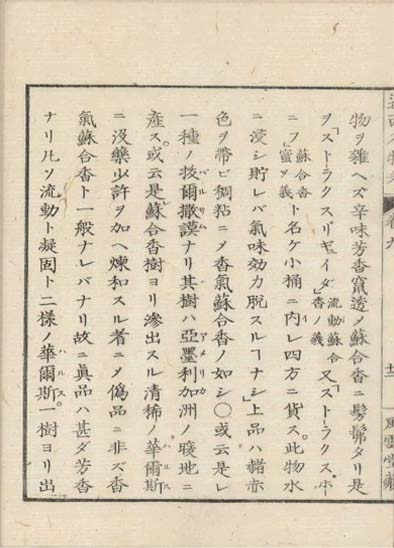 物ヲ雜ヘズ辛味芳香竄透ノ蘇合香ニ髣髴タリ是
ヲ「ストラクスリギイダ」流動蘇合香ノ義又「ストラクスホ
ニフ」蘇合蜜ノ義ト名ケ小桶ニ内レ四方ニ貨ス。此物水
ニ浸シ貯レバ氣味効力脱スルヿナシ」上品ハ赭赤
色ヲ帶ビ稠粘ニメ香氣蘇合香ノ如シ〇或云是レ
一種ノ拔爾撒謨ナリ其樹ハ亞墨利加洲ノ暖地ニ
バルサム アメリカ
產ス。或云是「蘇合香樹ヨリ滲出スル清稀ノ華爾斯
ハルス
ニ没藥少許ヲ加ヘ煉和スル者ニメ僞品ニ非ズ香
氣蘇合香ト一般ナレバナリ故ニ眞品ハ甚ダ芳香
ナリ凡ソ流動ト凝固ト二樣ノ華爾斯一樹ヨリ出
ハルス。
卷九
十二
風雲堂藏